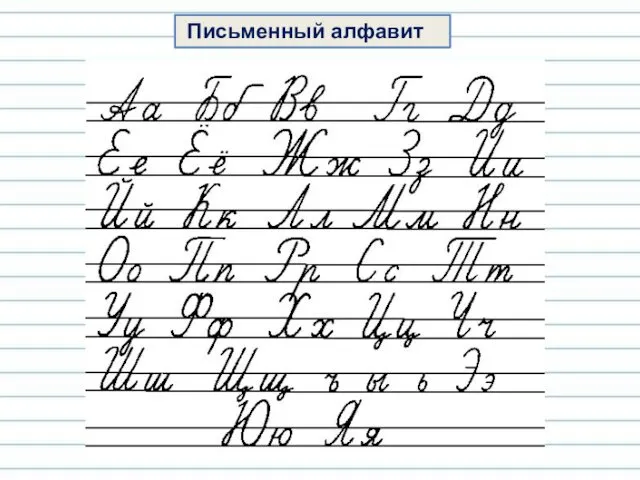 Письменный алфавит
Аа Бб Вв Гг Дд
Ее Ёё Жж Зз Ии
Йй Кк Лл Мм Нн
Оо Пп Рр Сс Тт
Уу Фф Хх Цц Чч
Шш Щщ ъ ы ь Ээ
Юю Яя